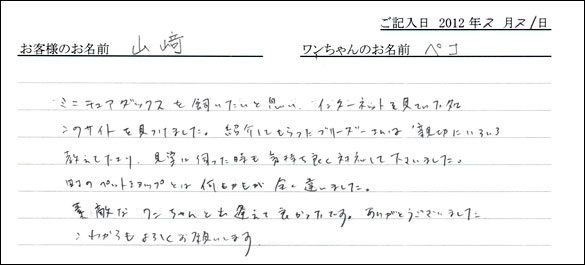 ご記入日 2012年2月21日
お客様のお名前 山﨑 ワンちゃんのお名前 ペコ
ミニチュアダックスを飼いたいと思い、インターネットを見ていた所
このサイトを見つけました。紹介してもらったブリーダーさんは親切にいろいろ
教えてくれたり、見学に伺った時も気持ち良く対応して下さいました。
町のペットショップとは何もかもが全く違いました。
素敵なワンちゃんとも逢えて良かったです。ありがとうございました
これからもよろしくお願いします。